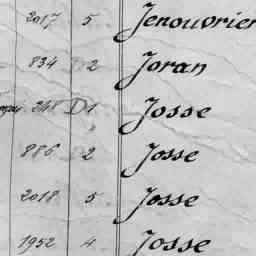 2017 5 Jenouvrier
834 2 Joran
248 D1 Josse
886 2 Josse
2018 5 Josse
1952 4 Josse